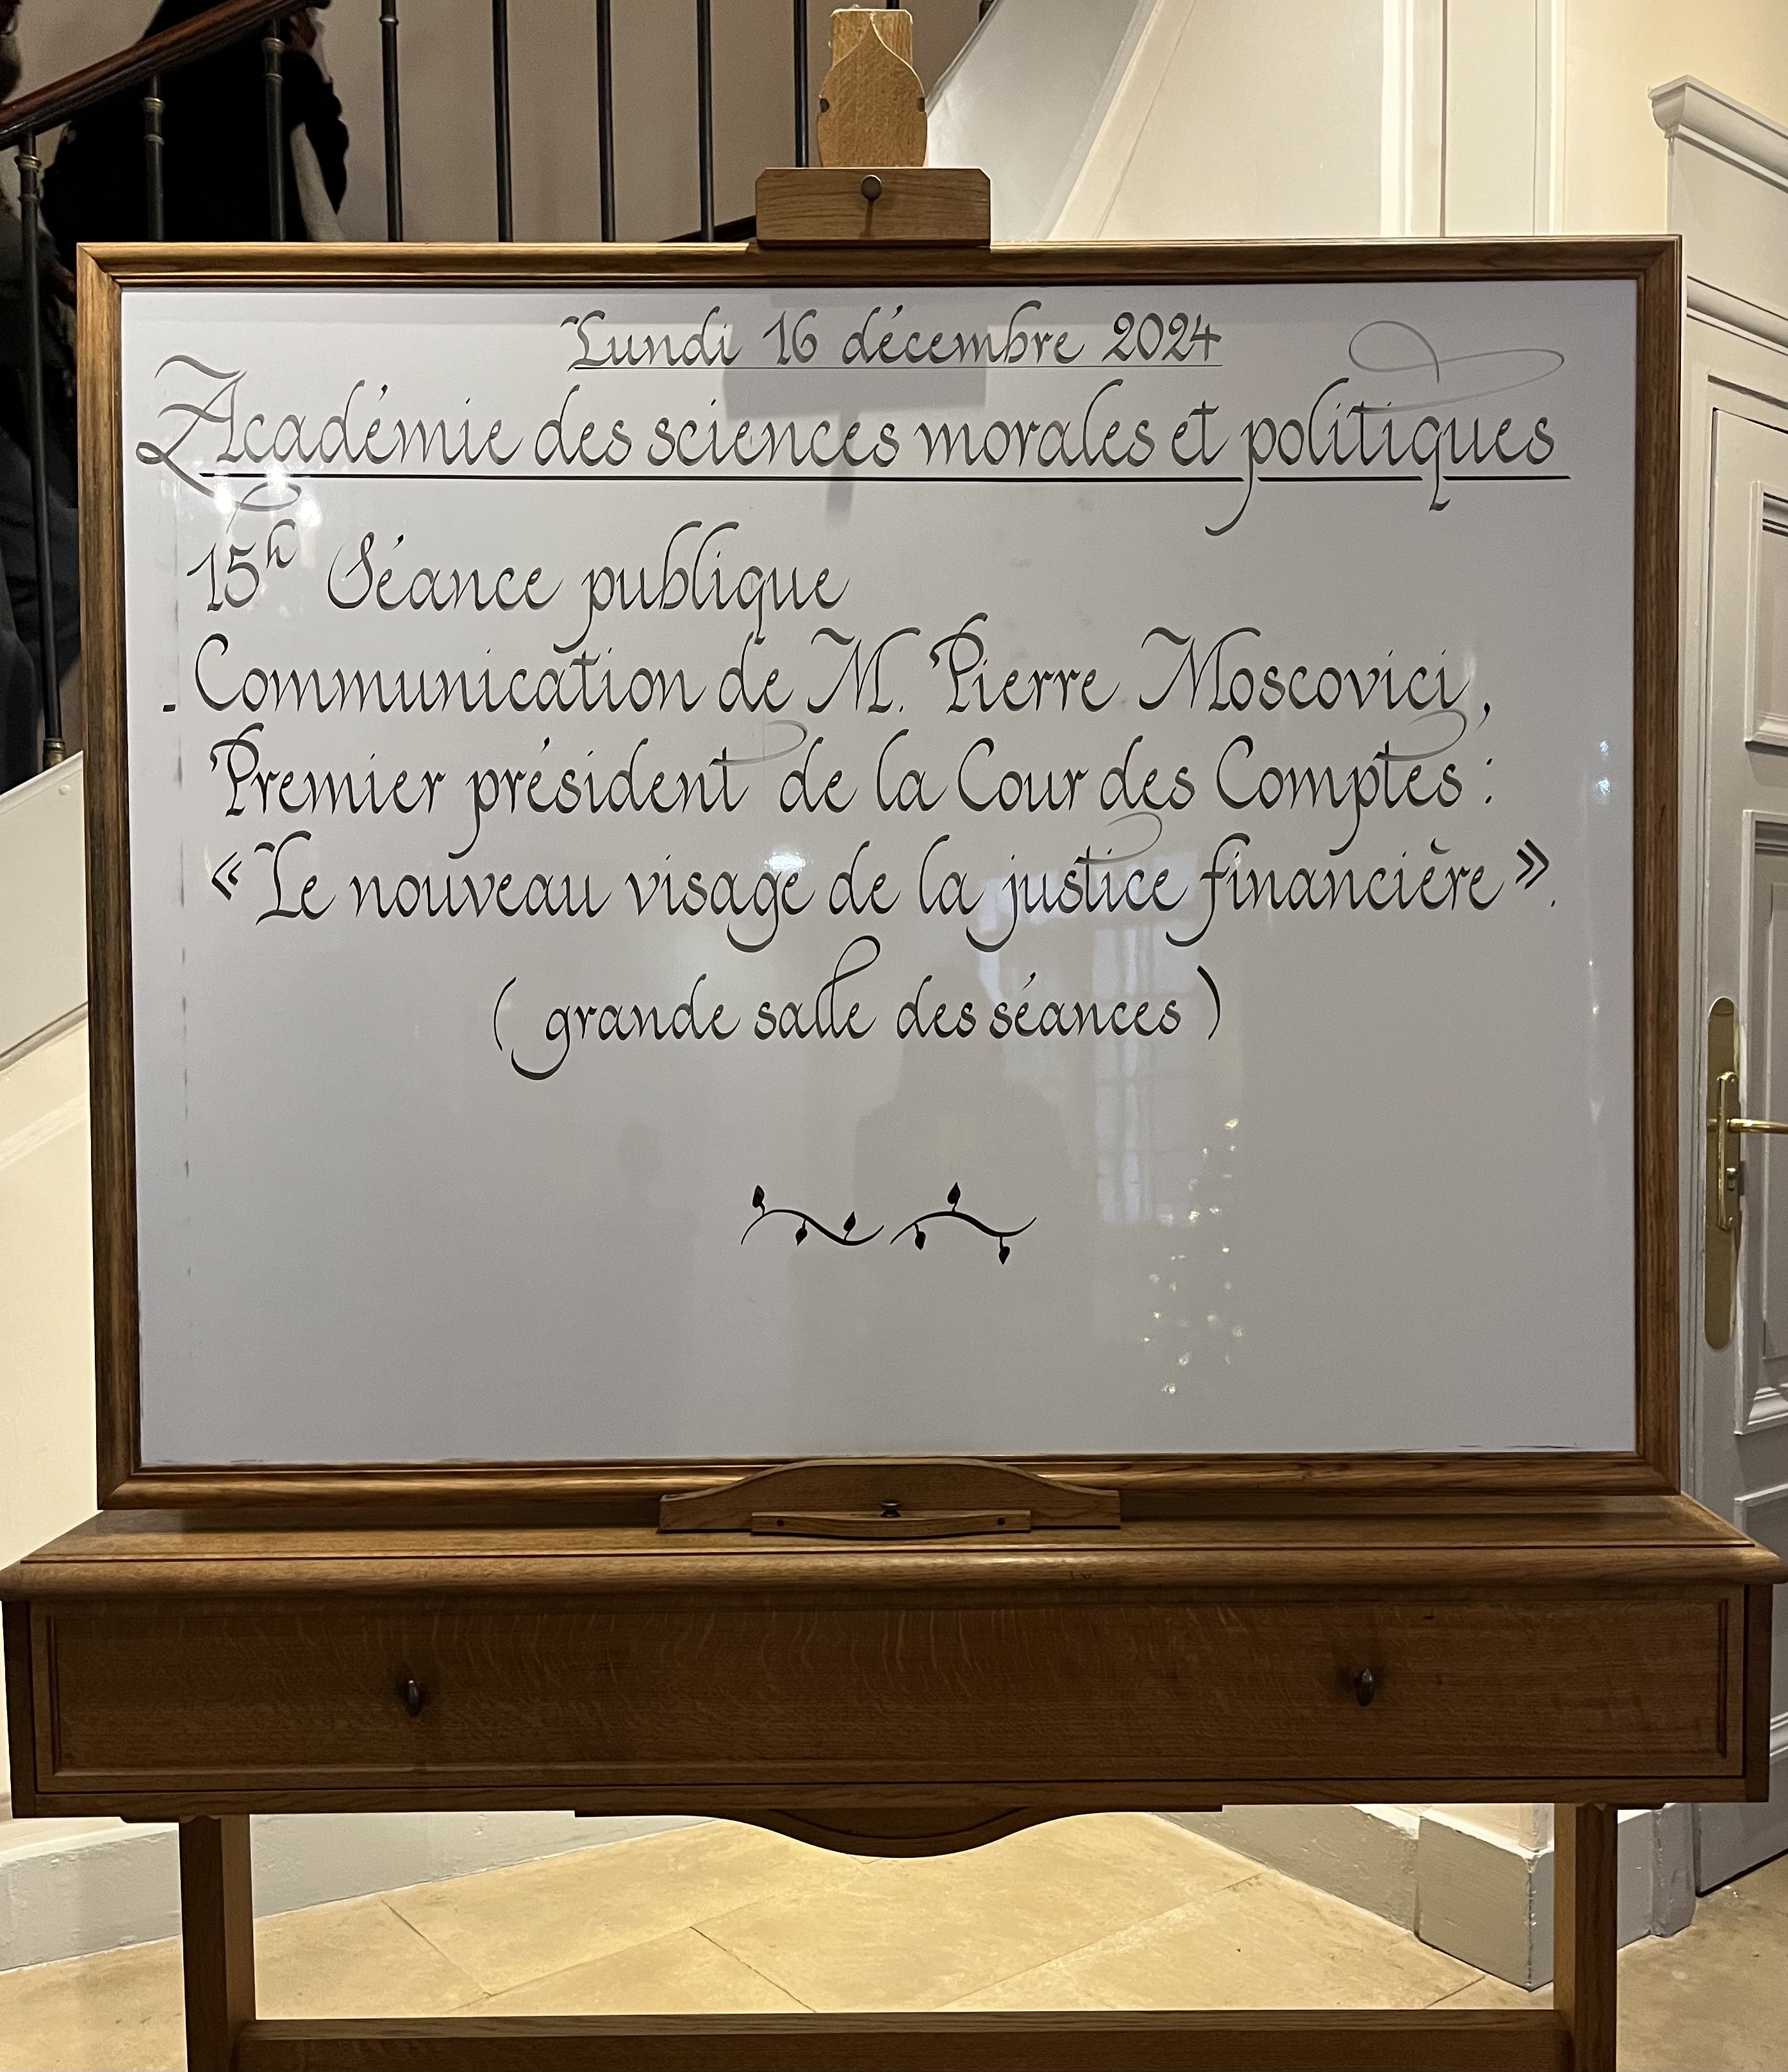 Lundi 16 décembre 2024
Académie des sciences morales et politiques
15h Séance publique
- Communication de M. Pierre Moscovici,
Premier président de la Cour des Comptes :
« Le nouveau visage de la justice financière ».
( grande salle des séances )